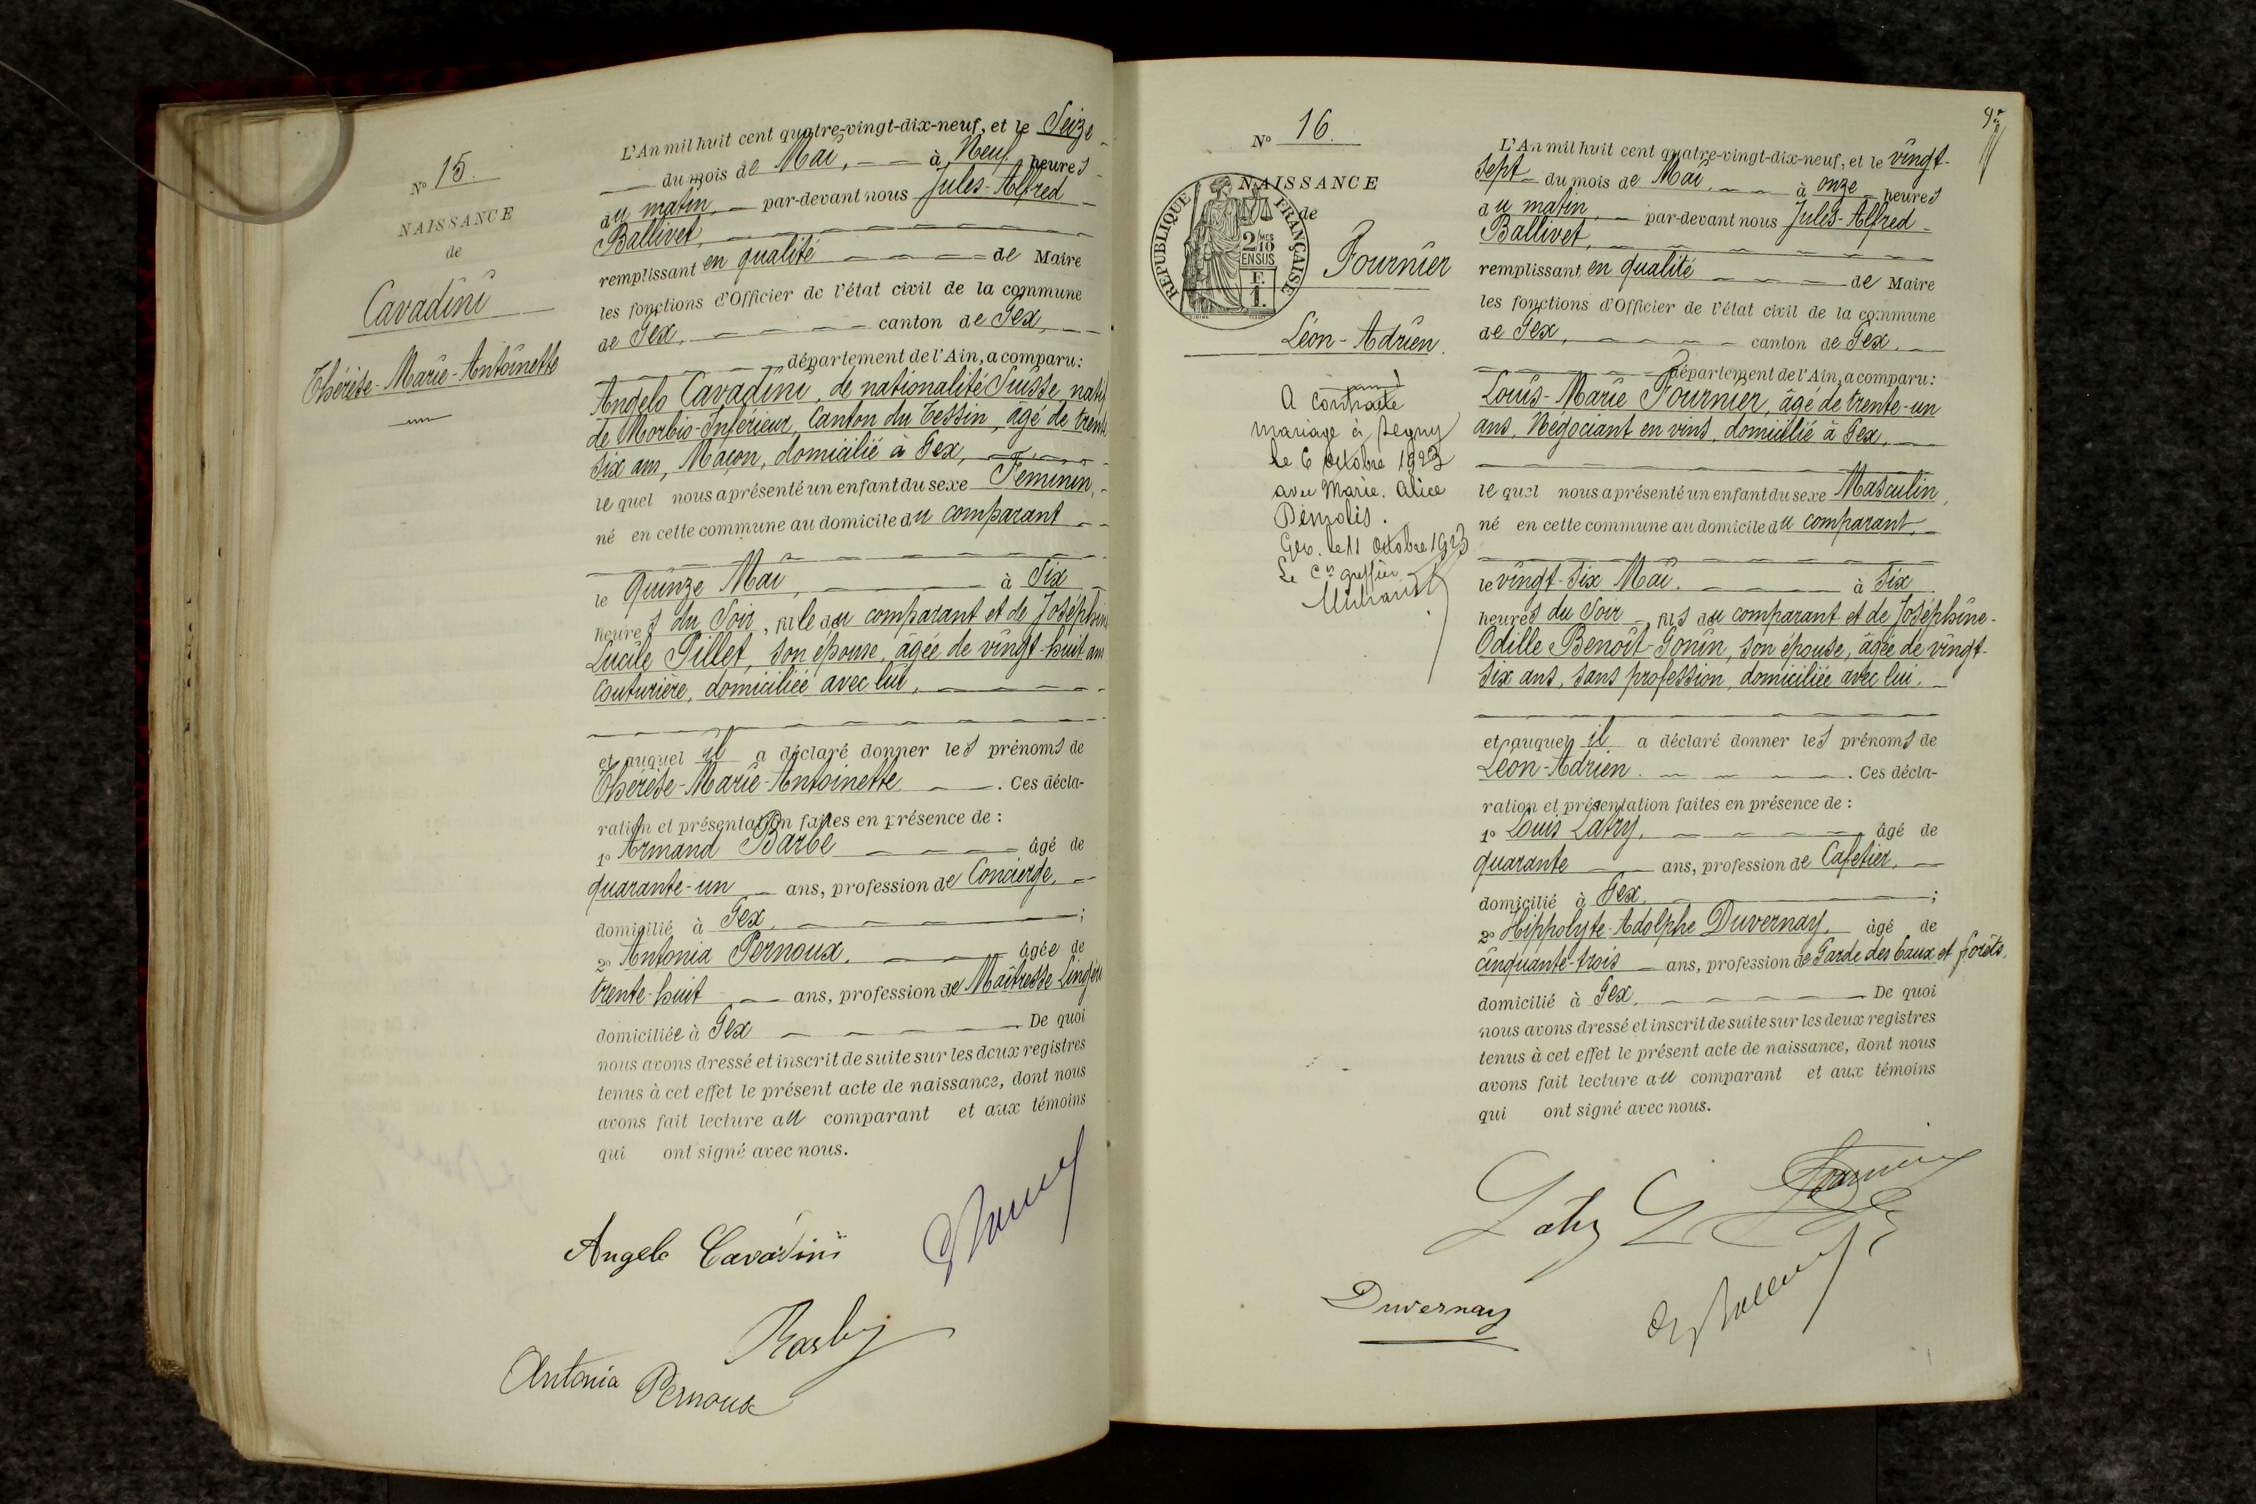 N° 15.
NAISSANCE
de
Cavadini
Thérèse-Marie-Antoinette
L'An mil huit cent quatre-vingt-dix-neuf, et le Seize
du mois de Mai, à Neuf heures
du matin, par-devant nous Jules-Alfred
Ballivet,
remplissant en qualité de Maire
les fonctions d'Officier de l'état civil de la commune
de Gex, canton de Gex,
département de l'Ain, a comparu:
Angelo Cavadini, de nationalité Suisse, natif
de Morbio-Inférieur, Canton du Tessin, âgé de trente
six ans, Maçon, domicilié à Gex,
lequel nous a présenté un enfant du sexe Féminin,
né en cette commune au domicile du comparant
le quinze Mai, à Six
heures du Soir, fille du comparant et de Joséphine
Lucile Pillet, son épouse, âgée de vingt-huit ans
Couturière, domiciliée avec lui,
et auquel il a déclaré donner les prénoms de
Thérèse-Marie-Antoinette. Ces décla-
ration et présentation faites en présence de :
1° Armand Barbe âgé de
quarante-un ans, profession de Concierge,
domicilié à Gex, ;
2° Antonia Pernoux, âgée de
trente-huit ans, profession de Maîtresse Lingère
domiciliée à Gex De quoi
nous avons dressé et inscrit de suite sur les deux registres
tenus à cet effet le présent acte de naissance, dont nous
avons fait lecture au comparant et aux témoins
qui ont signé avec nous.
Angelo Cavadini
Antonia Pernoux
N° 16.
NAISSANCE
de
RÉPUBLIQUE FRANÇAISE
2 MES
10
EN SUS
F.
1.
Fournier
Léon-Adrien.
A contracté
mariage à Segny
le 6 octobre 1923
avec Marie. Alice
Démolis.
Gex. le 11 Octobre 1923
Le Cis greffier
L'An mil huit cent quatre-vingt-dix-neuf, et le vingt-
sept du mois de Mai à onze heures
du matin, par-devant nous Jules-Alfred
Ballivet,
remplissant en qualité de Maire
les fonctions d'Officier de l'état civil de la commune
de Gex, canton de Gex.
département de l'Ain, a comparu:
Louis-Marie Fournier, âgé de trente-un
ans, Négociant en vins, domicilié à Gex,
lequel nous a présenté un enfant du sexe Masculin,
né en cette commune au domicile du comparant,
le vingt-six Mai. à six
heures du Soir, fils du comparant et de Joséphine-
Odille Benoît-Gonin, son épouse, âgée de vingt-
six ans, sans profession, domiciliée avec lui.
et auquel il a déclaré donner les prénoms de
Léon-Adrien. Ces décla-
ration et présentation faites en présence de :
1° Louis Latry, âgé de
quarante ans, profession de Cafetier,
domicilié à Gex. ;
2° Hippolyte-Adolphe Duvernay, âgé de
cinquante-trois ans, profession de Garde des Eaux et forêts,
domicilié à Gex. De quoi
nous avons dressé et inscrit de suite sur les deux registres
tenus à cet effet le présent acte de naissance, dont nous
avons fait lecture au comparant et aux témoins
qui ont signé avec nous.
Fournier
Duvernay